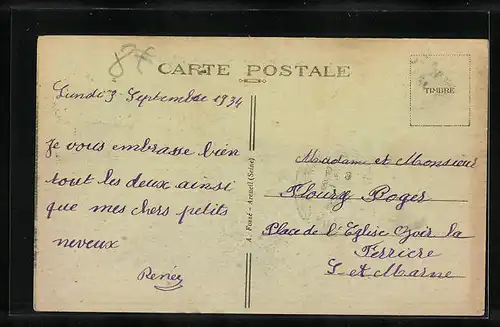 8f
CARTE POSTALE
TIMBRE
Lundi 3 Septembre 1934
Je vous embrasse bien
tout les deux ainsi
que mes chers petits
neveux
Renée
A. Faxé - Arcueil (Seine)
Madame et Monsieur
Flourx Roger
Place de l'Eglise Ozoir la
Ferriere
S. et Marne